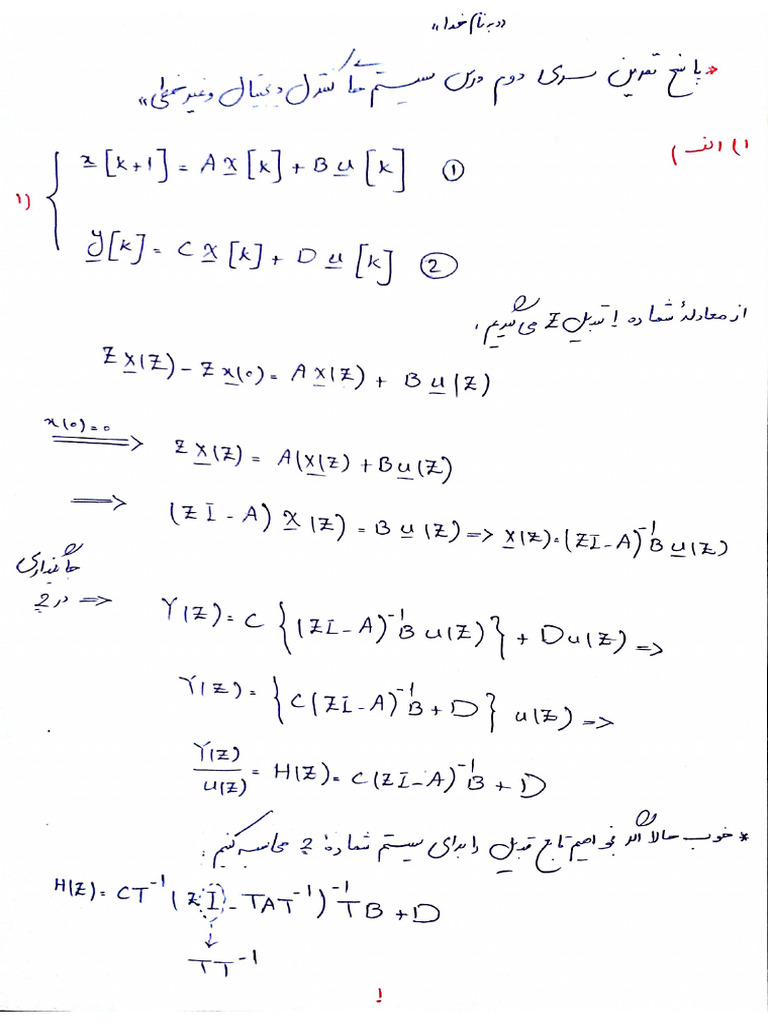 «به نام خدا»
* پاسخ تمرین سری دوم درس سیستم های کنترل دیجیتال و غیرخطی»
۱) الف)
1) { x[k+1] = A x[k] + B u[k] ①
y[k] = C x[k] + D u[k] ②
از معادلهٔ شماره ۱ تبدیل Z می گیریم.
Z X(Z) - Z x(0) = A X(Z) + B u(Z)
x(0)=0 ⟹ Z X(Z) = A(X(Z) + B u(Z)
⟹ (ZI - A) X(Z) = B u(Z) => X(Z) = (ZI - A)⁻¹ B u(Z)
جایگذاری
در 2 => Y(Z) = C {(ZI - A)⁻¹ B u(Z)} + D u(Z) =>
Y(Z) = {C(ZI - A)⁻¹ B + D} u(Z) =>
Y(Z)/u(Z) = H(Z) = C(ZI - A)⁻¹ B + D
* خوب حالا اگر بخواهیم تابع تبدیل را برای سیستم شمارهٔ 2 محاسبه کنیم:
H(Z) = CT⁻¹ (ZI - TAT⁻¹)⁻¹ TB + D
↓
TT⁻¹
1